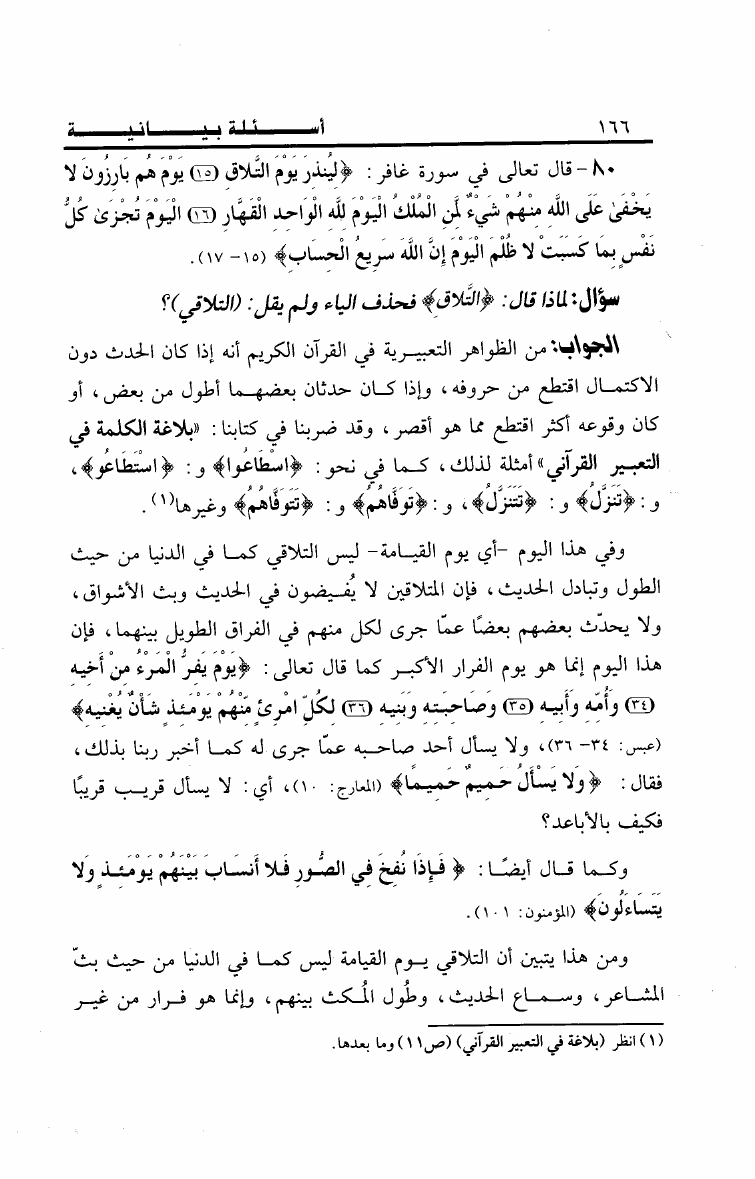 ١٦٦ أســئلة بيــانيــة
٨٠- قال تعالى في سورة غافر: ﴿لِيُنذِرَ يَوْمَ التَّلاقِ (١٥) يَوْمَ هُم بَارِزُونَ لا
يَخْفَىٰ عَلَى اللَّهِ مِنْهُمْ شَيْءٌ لِّمَنِ الْمُلْكُ الْيَوْمَ لِلَّهِ الْوَاحِدِ الْقَهَّارِ (١٦) الْيَوْمَ تُجْزَىٰ كُلُّ
نَفْسٍ بِمَا كَسَبَتْ لا ظُلْمَ الْيَوْمَ إِنَّ اللَّهَ سَرِيعُ الْحِسَابِ﴾ (١٥- ١٧).
سؤال: لماذا قال: ﴿التَّلاقِ﴾ فحذف الياء ولم يقل: (التلاقي)؟
الجواب: من الظواهر التعبيرية في القرآن الكريم أنه إذا كان الحدث دون
الاكتمال اقتطع من حروفه، وإذا كان حدثان بعضهما أطول من بعض، أو
كان وقوعه أكثر اقتطع مما هو أقصر، وقد ضربنا في كتابنا: «بلاغة الكلمة في
التعبير القرآني» أمثلة لذلك، كما في نحو: ﴿اسْطَاعُوا﴾ و: ﴿اسْتَطَاعُو﴾،
و: ﴿تَنَزَّلُ﴾ و: ﴿تَتَنَزَّلُ﴾، و: ﴿تَوَفَّاهُمُ﴾ و: ﴿تَتَوَفَّاهُمُ﴾ وغيرها(١).
وفي هذا اليوم -أي يوم القيامة- ليس التلاقي كما في الدنيا من حيث
الطول وتبادل الحديث، فإن المتلاقين لا يُفيضون في الحديث وبث الأشواق،
ولا يحدّث بعضهم بعضًا عمّا جرى لكل منهم في الفراق الطويل بينهما، فإن
هذا اليوم إنما هو يوم الفرار الأكبر كما قال تعالى: ﴿يَوْمَ يَفِرُّ الْمَرْءُ مِنْ أَخِيهِ
(٣٤) وَأُمِّهِ وَأَبِيهِ (٣٥) وَصَاحِبَتِهِ وَبَنِيهِ (٣٦) لِكُلِّ امْرِئٍ مِّنْهُمْ يَوْمَئِذٍ شَأْنٌ يُغْنِيهِ﴾
(عبس: ٣٤- ٣٦)، ولا يسأل أحد صاحبه عمّا جرى له كما أخبر ربنا بذلك،
فقال: ﴿وَلا يَسْأَلُ حَمِيمٌ حَمِيمًا﴾ (المعارج: ١٠)، أي: لا يسأل قريب قريبًا
فكيف بالأباعد؟
وكما قال أيضًا: ﴿فَإِذَا نُفِخَ فِي الصُّورِ فَلا أَنسَابَ بَيْنَهُمْ يَوْمَئِذٍ وَلا
يَتَسَاءَلُونَ﴾ (المؤمنون: ١٠١).
ومن هذا يتبين أن التلاقي يوم القيامة ليس كما في الدنيا من حيث بثّ
المشاعر، وسماع الحديث، وطُول المُكث بينهم، وإنما هو فرار من غير
(١) انظر (بلاغة في التعبير القرآني) (ص١١) وما بعدها.